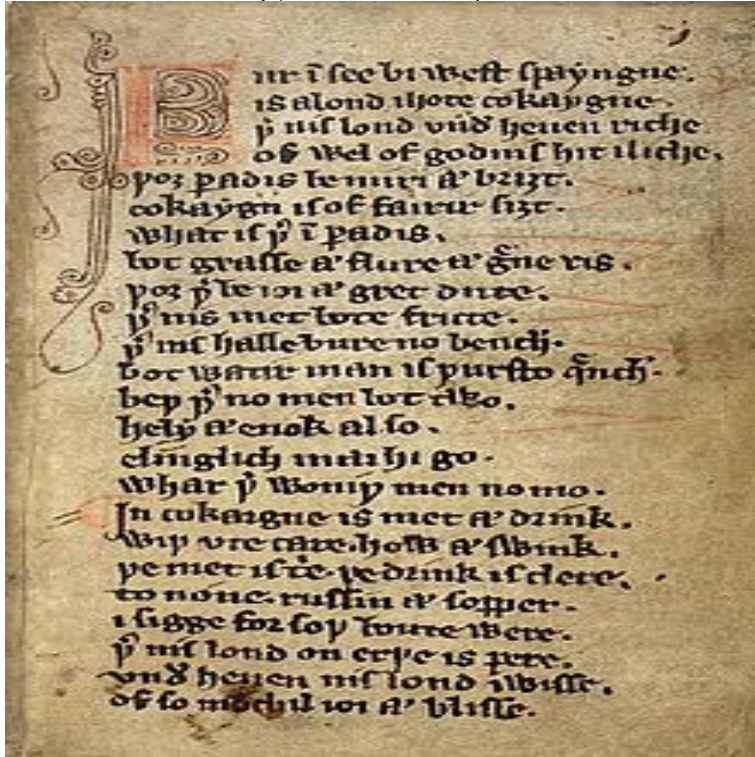 Fur ī see bi west spayngne.
is a lond ihote cokaygne.
þ̉ nis lond vnd̉ heuen riche
of wel of godnis hit iliche.
þoȝ ꝑadis be miri ⁊ briȝt.
cokaygn is of fairir siȝt.
what is þ̉ ī ꝑadis.
bot grasse ⁊ flure ⁊ g̉ne ris.
þoȝ þ̉ be ioi ⁊ gret dute.
þ̉ nis met bote frute.
þ̉ nis halle bure no bench.
bot watir man is þursto q̉nch.
beþ þ̉ no men bot two.
hely ⁊ enok also.
clinglich mai hi go.
whar þ̉ woniþ men no mo.
In cokaigne is met ⁊ drink.
wiþ vte care. how ⁊ swink.
þe met is t̉e. þe drink is clere.
to none. russin ⁊ sopper.
i sigge for soþ boute were.
þ̉ nis lond on erþe is pere.
vnd̉ heuen nis lond iwisse.
of so mochil ioi ⁊ blisse.